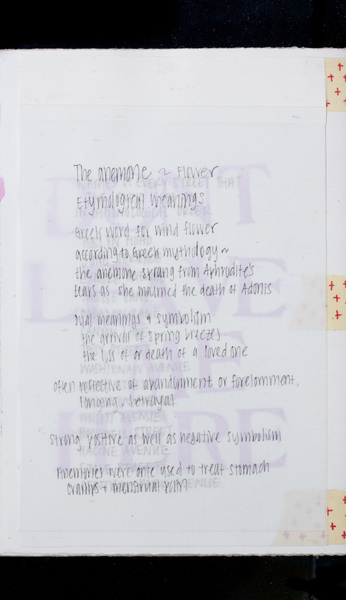 The anemone ~ Flower
Etymological meanings
Greek word for wind flower
according to Greek mythology ~
the anemone sprang from Aphrodite's
tears as she mourned the death of Adonis
dual meanings & symbolism
the arrival of spring breezes
the loss of or death of a loved one
often reflective of abandonment or
longing, betrayal
strong positive as well as negative symbolism
Anemones were once used to treat stomach
cramps + menstrual pain
DON'T
LEAVE
ME
HERE